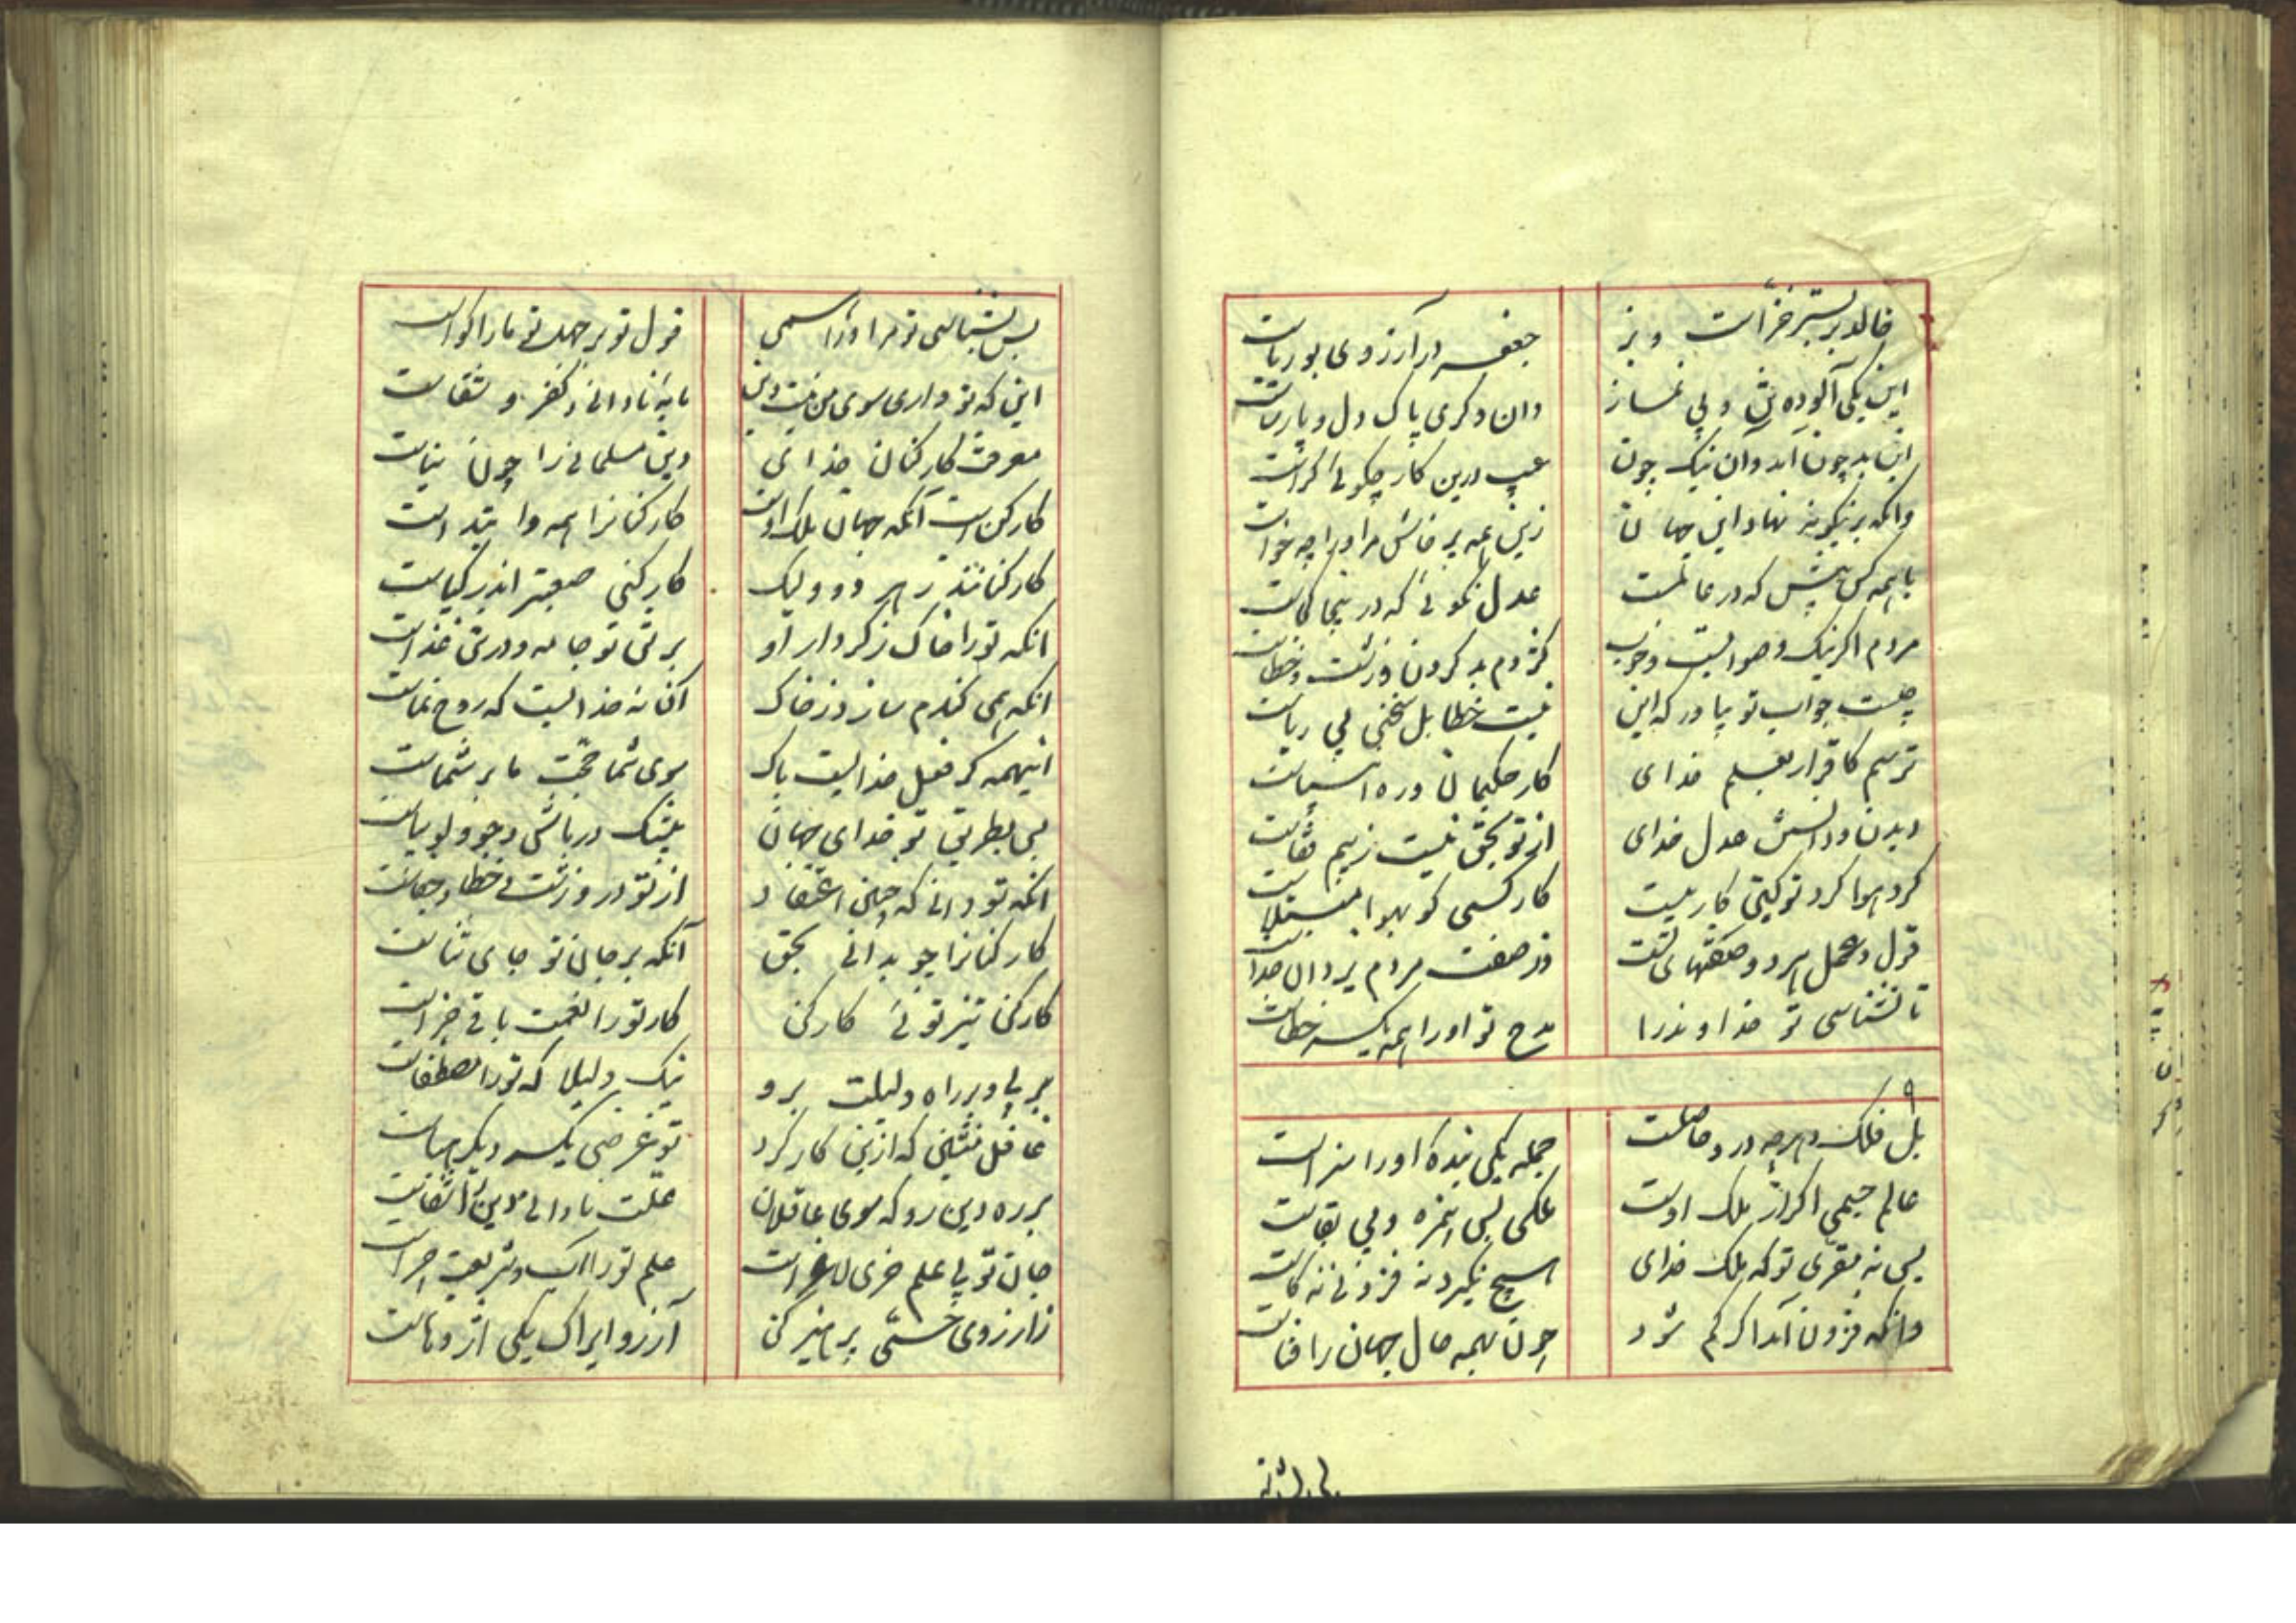 خالد بر بستر خزّ است و بز
جعفر در آرزوی بوریاست
این یکی آلوده تن و بی نماز
وان دکری پاک دل و پارساست
این بد چون آمد و آن نیک چون
عیب درین کار چکوئی کراست
وانکه برینکونه نهاد این جهان
زین همه پر خاش مر او را چه خواست
با همه کس بیش که در عالمست
عدل نکوئی که در اینجا کجاست
مردم اکر نیک و صوابست و خوب
کژدم بد کردن و زشت و خطاست
چیست جواب تو بیاور که این
نیست خطا بل سخنی بی ریاست
ترسم کاقرار بعدل خدای
از تو بحق نیست ز بیم قفاست
دیدن و دانستن عدل خدای
کار حکیمان و ره انبیاست
کرد هوا کرد تو کین کار نیست
کار کسی کو بهوا مبتلاست
قول و عمل هر دو صفتهای تست
وز صفت مردم یزدان جداست
تا نشناسی تو خداوند را
مدح تو او را همه یکسر خطاست
۹
بل فلک و هرچه درو حاصلست
جمله یکی بنده او را سزاست
عالم جسمی اکر از ملک اوست
ملکی بس بی مزه و بی بقاست
پس نه مقری تو که ملک خدای
هیچ نکیرد نه فزونی نه کاست
وانکه فزون آمد اکر کم شود
چون بهمه حال جهان را فناست
پس نشناسی تو مر او را همی
قول تو بر جهل تو ما را کواست
این که تو داری سوی من نیست دین
مایه نادانی و کفر و شقاست
معرفت کارکنان خدای
دین مسلمانی را چون بناست
کارکن است آنکه جهان ملک اوست
کارکنان را همه او ابتداست
کارکنانند ز هر در ولیک
کارکنی صعبتر اندر کیاست
انکه تو را خاک ز کردار او
بر تن تو جامه و در تن غذاست
انکه همی کندم سازد ز خاک
آن نه خدایست که روح نماست
اینهمه کر فعل خدایست پاک
سوی شما حجت ما بر شماست
پس بطریق تو خدای جهان
بیشک در باش و جو و لوبیاست
انکه تو دانی که چنین اعتقاد
از تو در و زشتی و خطا و جفاست
کارکنان را چو بدانی بحق
آنکه بر جان تو جای ثناست
کارکن نیز توئی کارکن
کار تو را نعمت باقی جزاست
بر پی و بر راه دلیلت برو
نیک دلیلا که تو را مصطفاست
غافل منشین که ازین کار کرد
تو غرضی یکسر دیکر هباست
بر ره دین رو که سوی عاقلان
علت نادانی را دین شفاست
جان تو بی علم خری لاغر است
علم تو را آب و شریعت چراست
زارزوی حسّی پرهیز کن
آرزو ایراک یکی اژدهاست